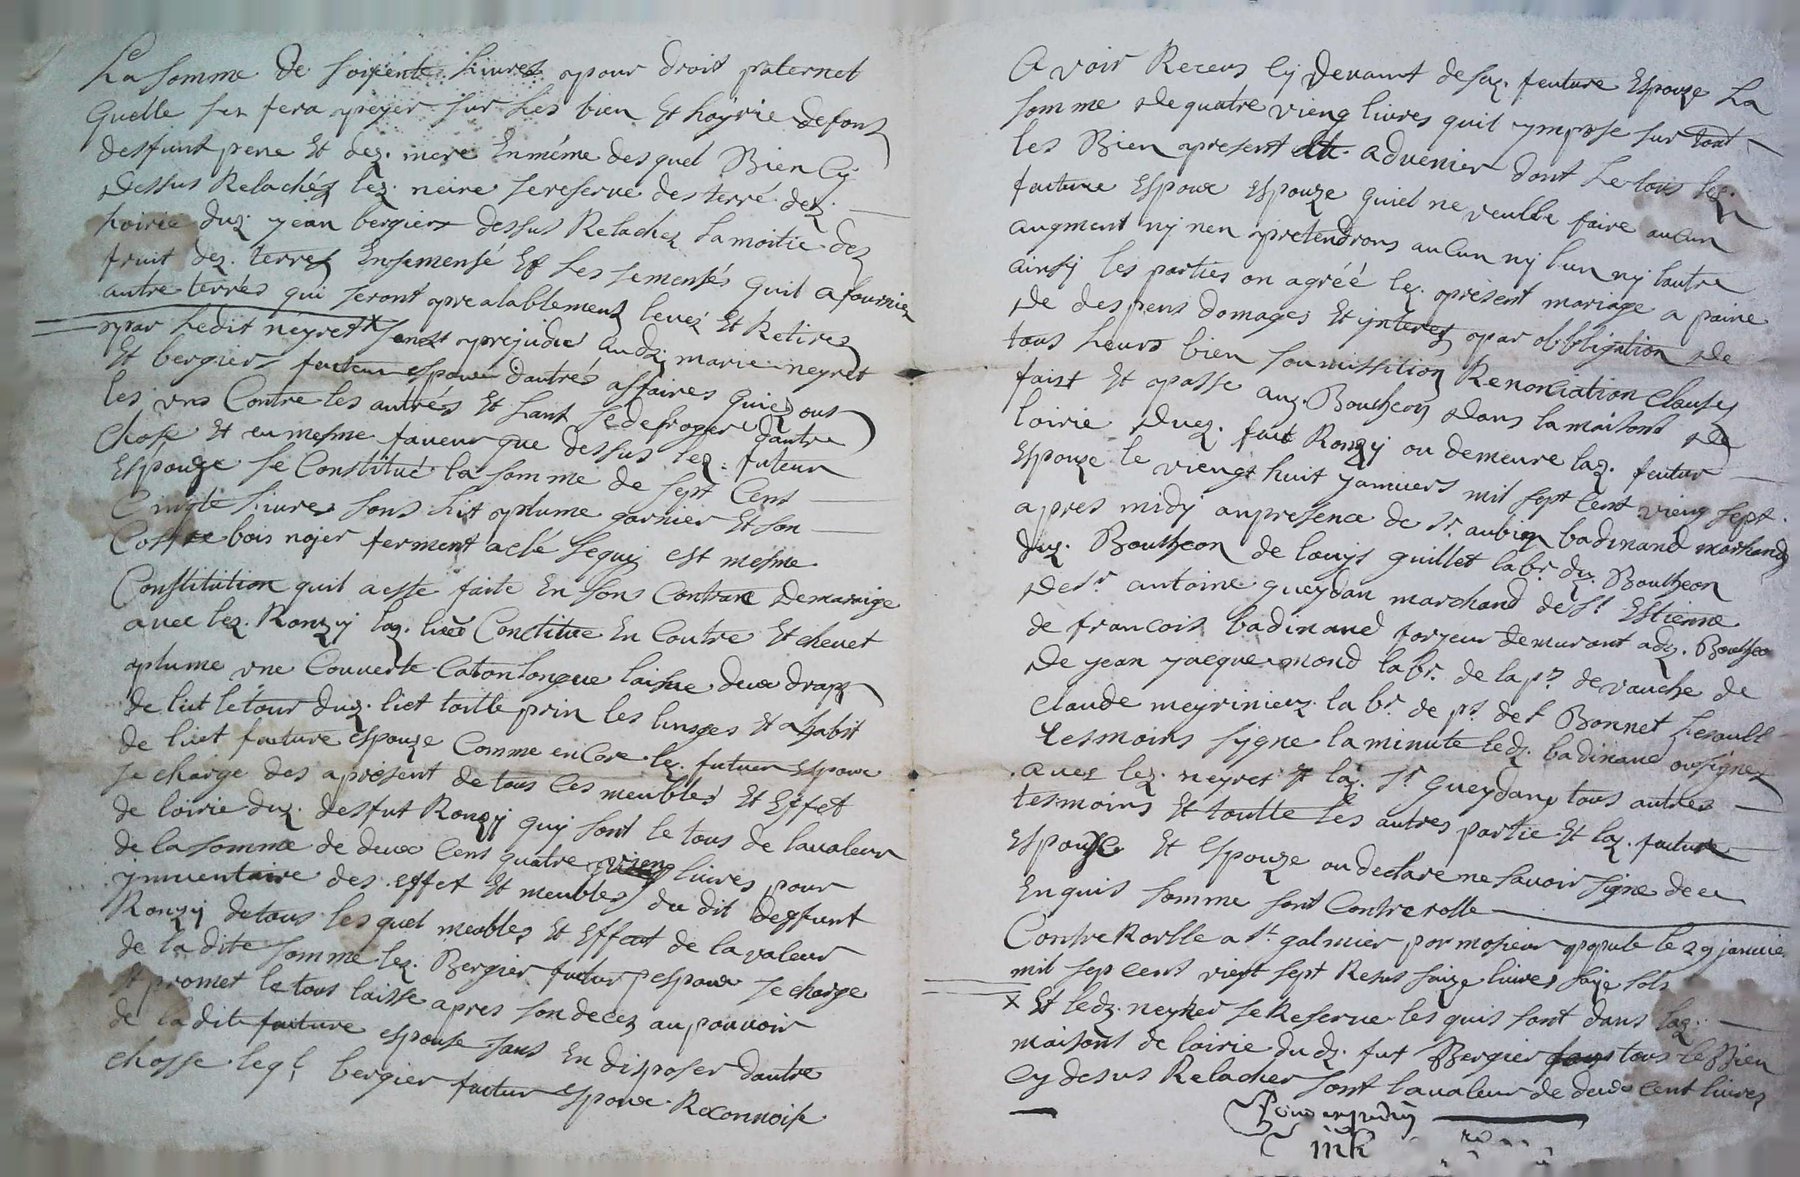 La somme de soixente livres pour droit paternel
quelle sen fera peyer sur les bien et hoyrie defont
desfunt pere et dez. mere en même desquel Bien cy
dessus Relachéz lez. neire se reserve des terré dez.
hoirie duz. jean bergier dessus Relachez la moitie dez
fruit dez. terres Ensemensé Et les semensés quil a fournier
autre terrés qui seront prealablement levéz Et Retirez
par Ledit neyret x sanst prejudice audz. marie neyret
Et bergier feuteur espoux dautrés affaires quiez ont
les uns Contre les autrés Et sant se desroger dautre
chose Et en mesme faveur que dessus lez. futeur
Espouze se Constitué la somme de sept Cens
Cinqte Livres sons lit plume garnier Et son
Coffre bois nojer ferment a clé sequij est mesme
Constitution quil aeste faite En sons Contract demaraige
avec lez. Ronzij laz. Constitue En Coutre Et chevet
plume vne Couverte Catonlongue laisne deux drapz
de lict létour duz. lict toille prin les linges Et a habit
de lict facture espouze Comme enCore lez. futeur Espoux
se charge des aprésent de tous Ces meublés Et Effet
de loirie duz. desfut Ronzij quij sont le tous de lavaleur
de la somme de deux Cens quatre vieng livres pour
jnnventaire des effet Et meubles du dit deffunt
Ronzij de tous les quel meubles Et Effect de lavaleur
de la dite somme lez. Bergier futur espoux se charge
Et promet le tous laisse apres son decez au pouvoir
de la dite facture espouse sans En disposer dautre
chosse leql. bergier futur Espoux Reconnoist
A voir Receus Cij Devant de saz. feuture Espouze La
somme de quatre vieng livres quil ympose sur tout
les Bien present et advenier dont le tous lez.
facture Espoux espouze quiel ne veulle faire aucun
augment nij nen pretendrons aucun nij l'un nij lautre
ainsij les parties on agréé lez. présent mariage a paine
de despens domages Et jnteres par obbligation de
tous Leurs bien soumission Renonciation Clauses
faist Et passe auz. Boutheon dans la maisont de
loirie duz. fut Ronzij ou demeure laz. feutur
Espouze le viengt huit janviers mil sept Cent vieng sept
apres midij anpresence de sr. aubin badinand marchand
duz. Boutheon de louijs guillet labr. du. Boutheon
de sr. antoine gueydan marchand de st. Estienne
de francois badinand forzeur demurant adz. Boutheon
de jean jacquemond labr. de la psse. devauche de
claude meyrinieux labr. de ps. de st Bonnet Lesoult
tesmoins sygne la minute ledz. badinand ousignez
avec lez. neyret Et laz. sr. gueydan tous autres
tesmoins Et toutte les autres partie Et laz. facture
Espouze Et Espouze ou declare ne savoir signe de ce
Enquis somme sont Contrerolle
ContreRoelle a st. galmier par mosieur popule le 29 janvier
mil sep cens vient sept Resus saize livres saize sols
x Et ledz. neyret se Reserve les quis sont dans laz.
maisont de loirie dudz. fut Bergier tous le Bien
Cy desus Relacher sont lavaleur de deux cent livres